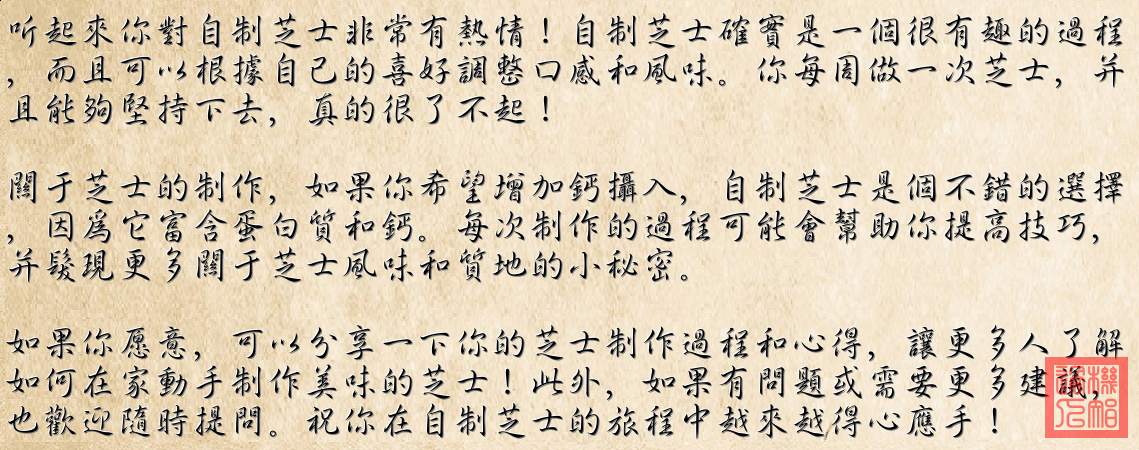 听起來你對自制芝士非常有熱情！自制芝士確實是一個很有趣的過程
，而且可以根據自己的喜好調整口感和風味。你每周做一次芝士，并
且能夠堅持下去，真的很了不起！
關于芝士的制作，如果你希望增加鈣攝入，自制芝士是個不錯的選擇
，因爲它富含蛋白質和鈣。每次制作的過程可能會幫助你提高技巧，
并髮現更多關于芝士風味和質地的小秘密。
如果你愿意，可以分享一下你的芝士制作過程和心得，讓更多人了解
如何在家動手制作美味的芝士！此外，如果有問題或需要更多建議，
也歡迎隨時提問。祝你在自制芝士的旅程中越來越得心應手！